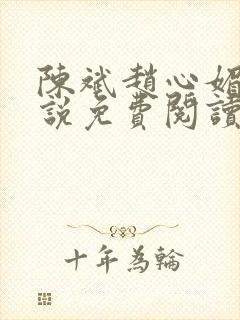 陳斌趙心媚
說免費閱讀
十年為輪